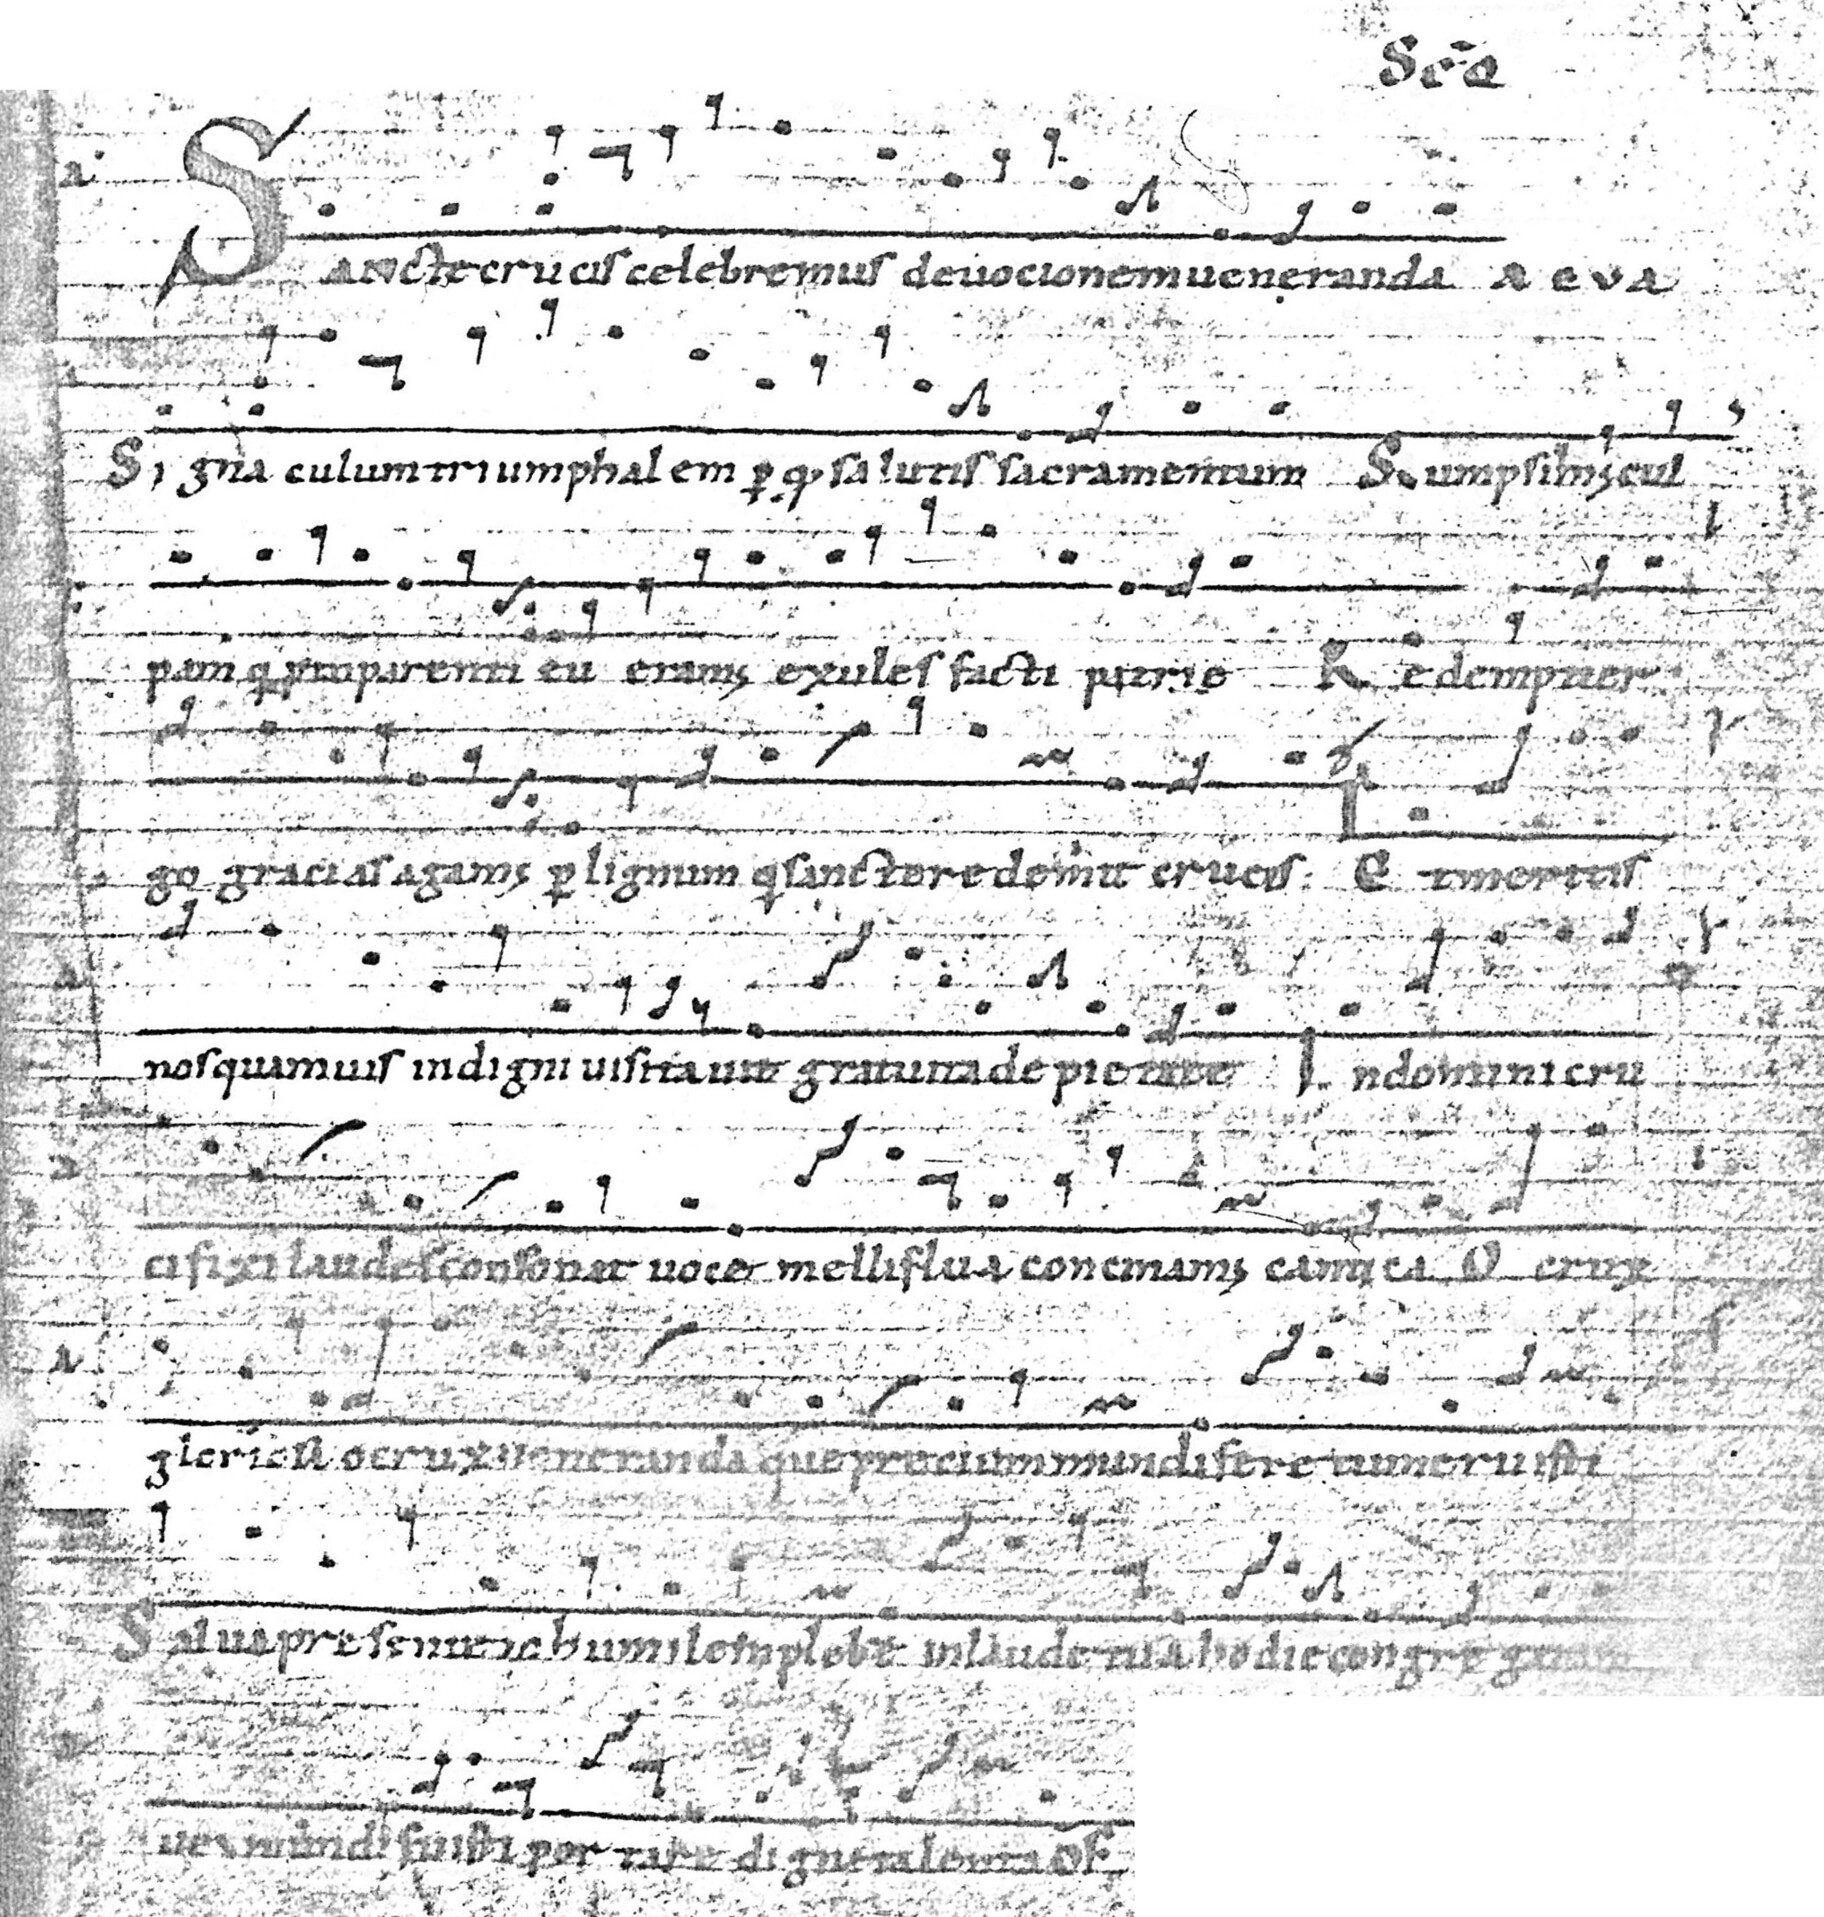 Scē
SANCTE crucis celebremus deuocionem ueneranda A E V A
Signaculum triumphalem ꝑ qđ salutis sacramentum Sumpsimꝰ cul
pam q̇ parenti eu eramꝰ exules facti patrie Redempti er
go gracias agamꝰ ꝑ lignum q sancte redemit crucis. Et meritis
nos quamuis indigni uisitauit gratuita de pietate In domini cru
cifixi laudes consonat uoce melliflua concinamꝰ cantica O crux
gloriosa o crux ueneranda que precium mundi ferre meruisti
Salua presentem humilem plebem in laude tua hodie congre
mundi fuisti portare digne talenta